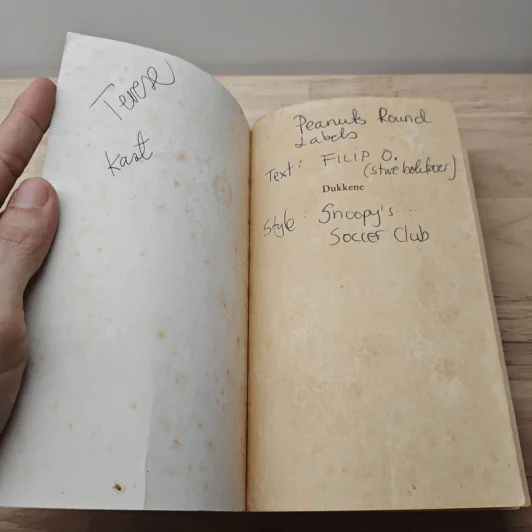 Terese
Kast
Peanuts Round
Labels
Text: FILIP O.
(store bokstaver)
Dukkene
Style Snoopy's
Soccer Club